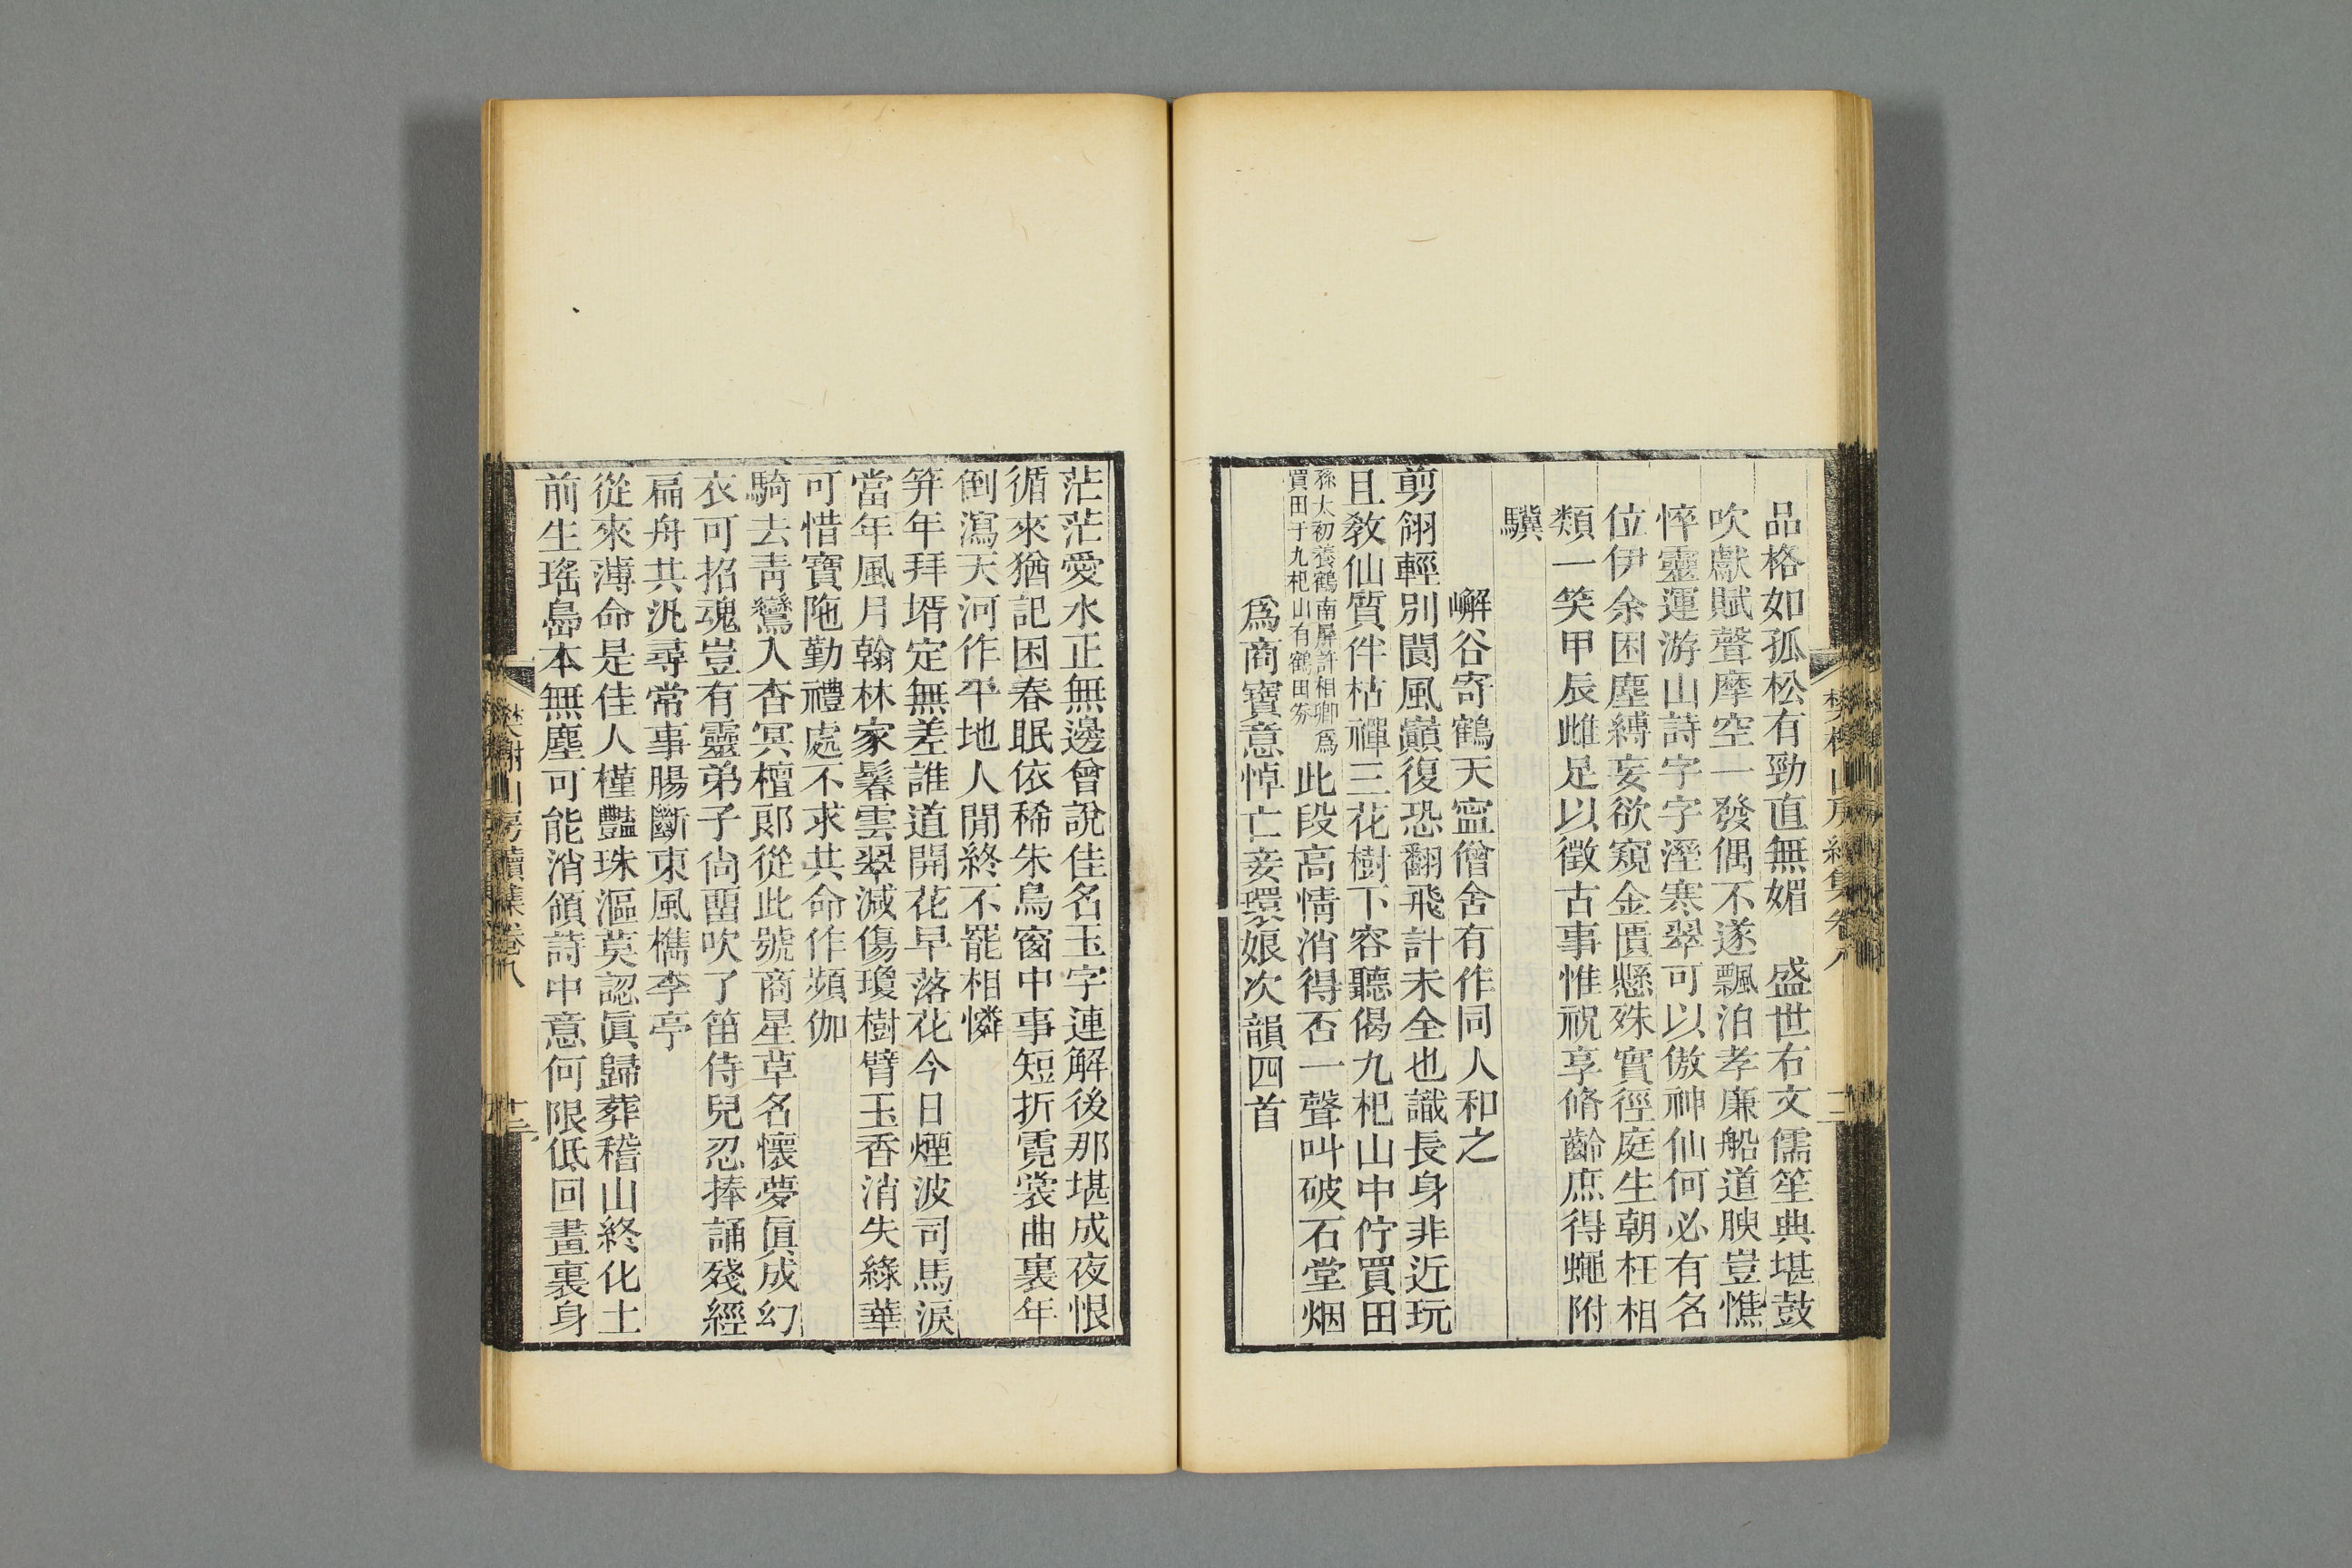 品格如孤松有勁直無媚　盛世右文儒笙典堪鼓
吹獻賦聲摩空一發偶不遂飄泊孝廉船道腴豈憔
悴靈運游山詩字字溼寒翠可以傲神仙何必有名
位伊余困塵縛妄欲窺金匱懸殊實徑庭生朝枉相
類一笑甲辰雌足以徵古事惟祝享脩齡庶得蠅附
驥
嶰谷寄鶴天寍僧舍有作同人和之
剪翎輕別閬風巔復恐翻飛計未全也識長身非近玩
且敎仙質伴枯禪三花樹下容聽偈九杞山中佇買田
孫太初養鶴南屏許相卿爲
買田于九杞山有鶴田券
此段高情消得否一聲叫破石堂烟
爲商寶意悼亡妾環娘次韻四首
茫茫愛水正無邊曾說佳名玉字連解後那堪成夜恨
循來猶記困春眠依稀朱鳥窗中事短折霓裳曲裏年
倒瀉天河作平地人閒終不罷相憐
筓年拜壻定無差誰道開花早落花今日煙波司馬淚
當年風月翰林家鬈雲翠減傷瓊樹臂玉香消失綠華
可惜寶陁勤禮處不求共命作頻伽
騎去靑鸞入杳冥檀郞從此號商星草名懷夢眞成幻
衣可招魂豈有靈弟子尙畱吹了笛侍兒忍捧誦殘經
扁舟共汎尋常事腸斷東風檇李亭
從來薄命是佳人槿豔珠漚莫認眞歸葬稽山終化土
前生瑤島本無塵可能消領詩中意何限低回畫裏身
樊榭山房續集卷八
十三